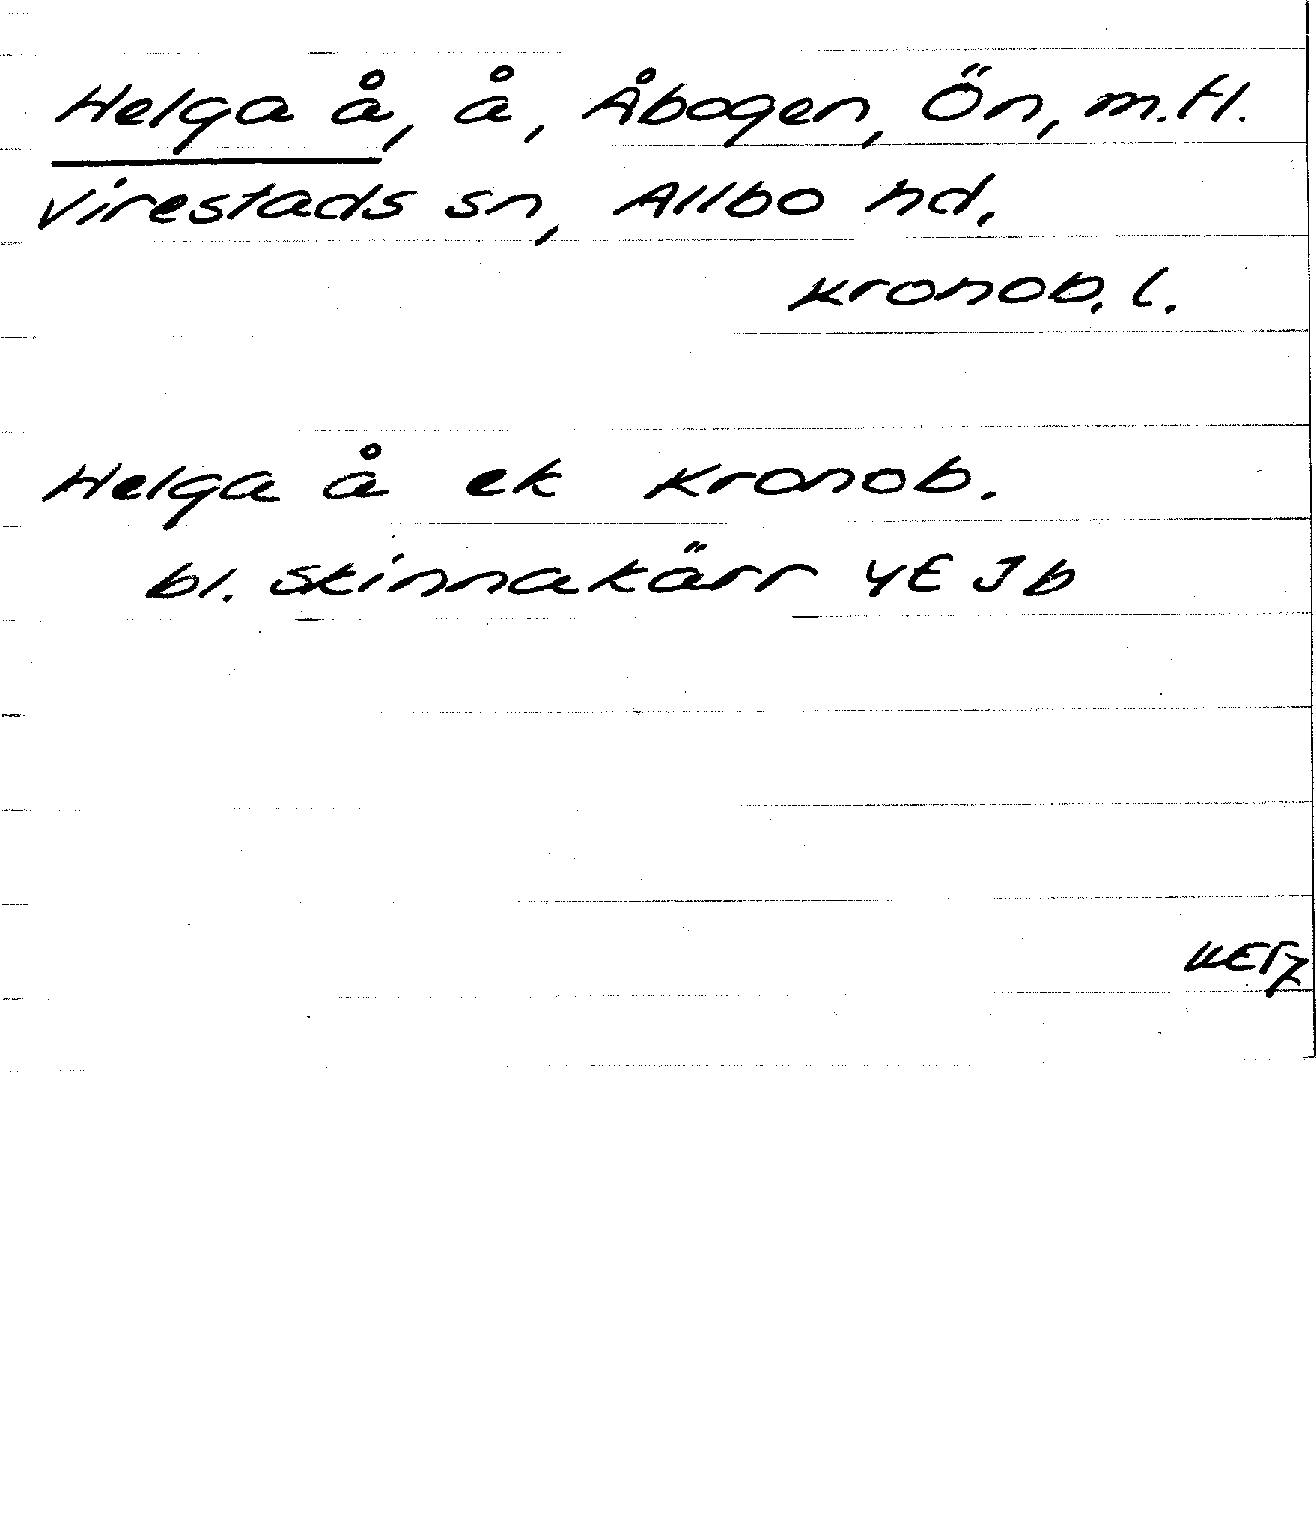 Helga å, å, Åbogen, Ön, m.fl.
Virestads sn, Allbo hd.
Kronob. l.
Helga å ek Kronob.
bl. Skinnakärr 4E Jb